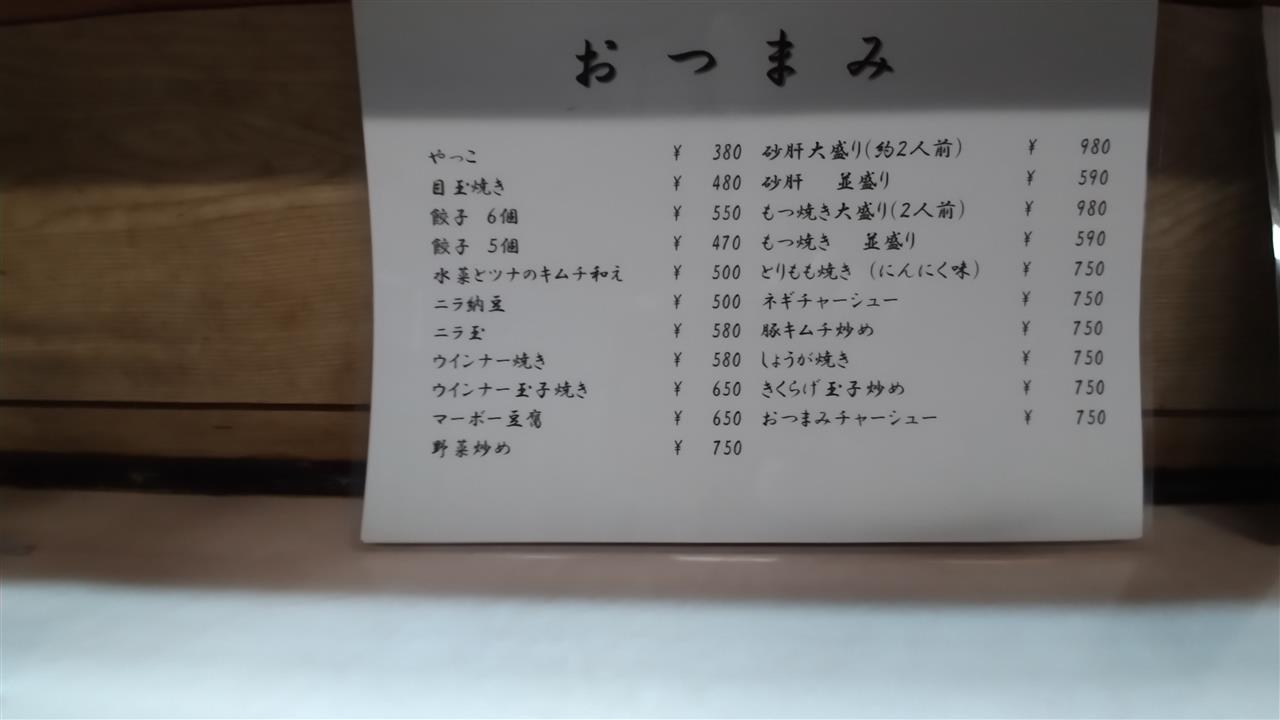 おつまみ
やっこ ¥ 380
目玉焼き ¥ 480
餃子 6個 ¥ 550
餃子 5個 ¥ 470
水菜とツナのキムチ和え ¥ 500
ニラ納豆 ¥ 500
ニラ玉 ¥ 580
ウインナー焼き ¥ 580
ウインナー玉子焼き ¥ 650
マーボー豆腐 ¥ 650
野菜炒め ¥ 750
砂肝大盛り(約2人前) ¥ 980
砂肝 並盛り ¥ 590
もつ焼き大盛り(2人前) ¥ 980
もつ焼き 並盛り ¥ 590
とりもも焼き (にんにく味) ¥ 750
ネギチャーシュー ¥ 750
豚キムチ炒め ¥ 750
しょうが焼き ¥ 750
きくらげ玉子炒め ¥ 750
おつまみチャーシュー ¥ 750